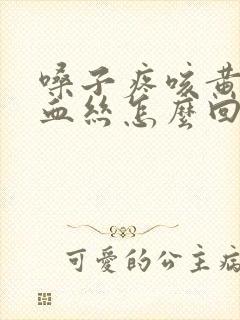 嗓子疼咳黄
血丝怎麼回
可愛的公主病